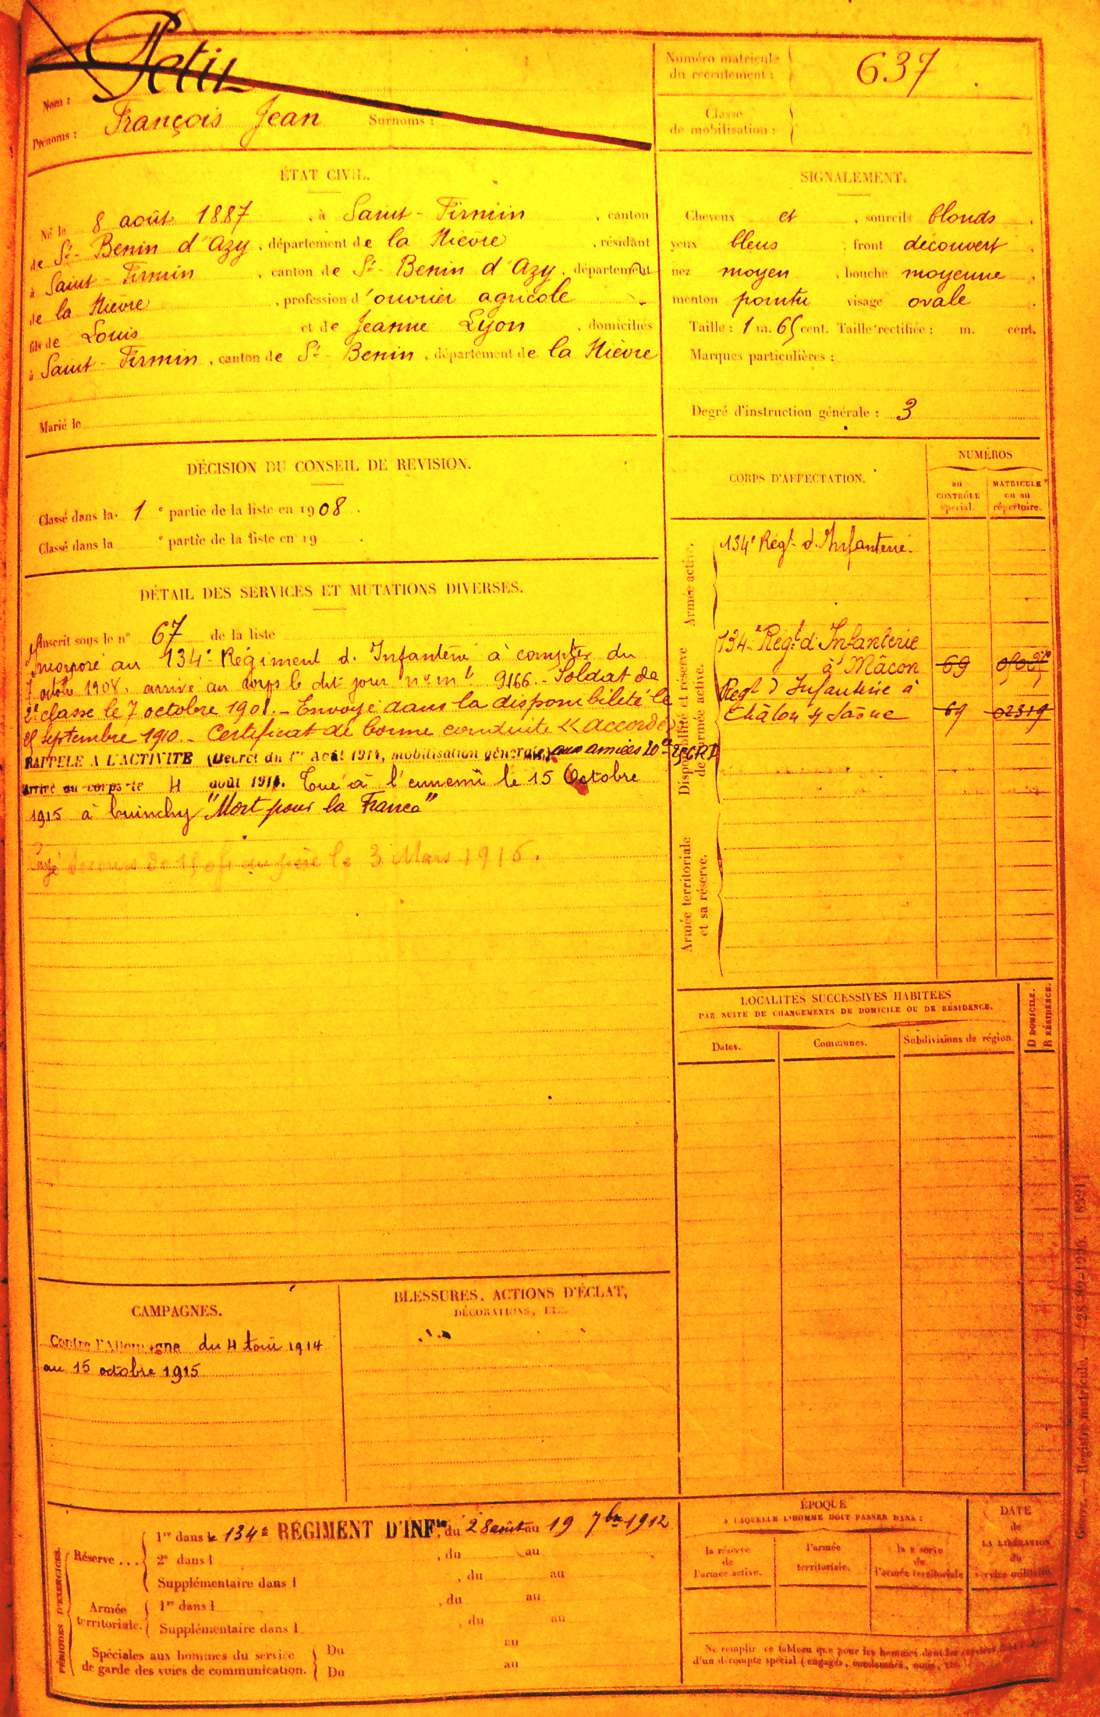 Nom : Petit
Prénoms : François Jean Surnoms :
Numéro matricule
du recrutement : 637
Classe
de mobilisation :
ÉTAT CIVIL.
Né le 8 août 1887, à Saint-Firmin, canton
de St-Benin d'Azy, département de la Nièvre, résidant
à Saint-Firmin, canton de St-Benin d'Azy, département
de la Nièvre, profession d'ouvrier agricole
fils de Louis et de Jeanne Lyon, domiciliés
à Saint-Firmin, canton de St-Benin, département de la Nièvre
Marié le
SIGNALEMENT.
Cheveux et, sourcils blonds.
yeux bleus, front découvert
nez moyen, bouche moyenne
menton pointu visage ovale
Taille : 1 m. 65 cent. Taille rectifiée : m. cent.
Marques particulières :
Degré d'instruction générale : 3
DÉCISION DU CONSEIL DE REVISION.
Classé dans la 1e partie de la liste en 1908.
Classé dans la e partie de la liste en 19 .
DÉTAIL DES SERVICES ET MUTATIONS DIVERSES.
Inscrit sous le n° 67 de la liste
Incorporé au 134e Régiment d'Infanterie à compter du
7 octobre 1908. arrivé au corps le dit jour n° mle 9166. - Soldat de
2e classe le 7 octobre 1908. - Envoyé dans la disponibilité le
septembre 1910. - Certificat de bonne conduite « accordé »
RAPPELÉ A L'ACTIVITÉ (Décret du 1er Août 1914, mobilisation générale) aux armées
Arrivé au corps le 4 août 1914. Tué à l'ennemi le 15 Octobre
1915 à "Mort pour la France"
Payé secours de 150 f au père le 3 Mars 1916.
CORPS D'AFFECTATION.
NUMÉROS
au
CONTRÔLE
spécial.
MATRICULE
ou au
répertoire.
Armée active.
134e Régt d'Infanterie.
Disponibilité et réserve
de l'armée active.
134e Régt d'Infanterie
à Mâcon 69
Régt d'Infanterie à
Châlon s/ Saône 69 02319
Armée territoriale
et sa réserve.
LOCALITÉS SUCCESSIVES HABITÉES
PAR SUITE DE CHANGEMENTS DE DOMICILE OU DE RÉSIDENCE.
Dates. Communes. Subdivisions de région.
D DOMICILE.
R RÉSIDENCE.
CAMPAGNES.
Contre l'Allemagne du 4 Août 1914
au 15 octobre 1915
BLESSURES, ACTIONS D'ÉCLAT,
DÉCORATIONS, ETC.
PÉRIODES D'EXERCICES.
Réserve ...
1re dans le 134e RÉGIMENT D'INFie, du 28 août au 19 7bre 1912
2e dans l , du au
Supplémentaire dans l , du au
Armée
territoriale.
1re dans l , du au
Supplémentaire dans l , du au
Spéciales aux hommes du service
de garde des voies de communication.
Du au
Du au
ÉPOQUE
A LAQUELLE L'HOMME DOIT PASSER DANS :
la réserve
de
l'armée active.
l'armée
territoriale.
la réserve
de
l'armée territoriale
DATE
de
LA LIBÉRATION
du
service militaire.
Ne remplir ce tableau que pour les hommes dont les services
d'un décompte spécial (engagés, condamnés, omis, etc.